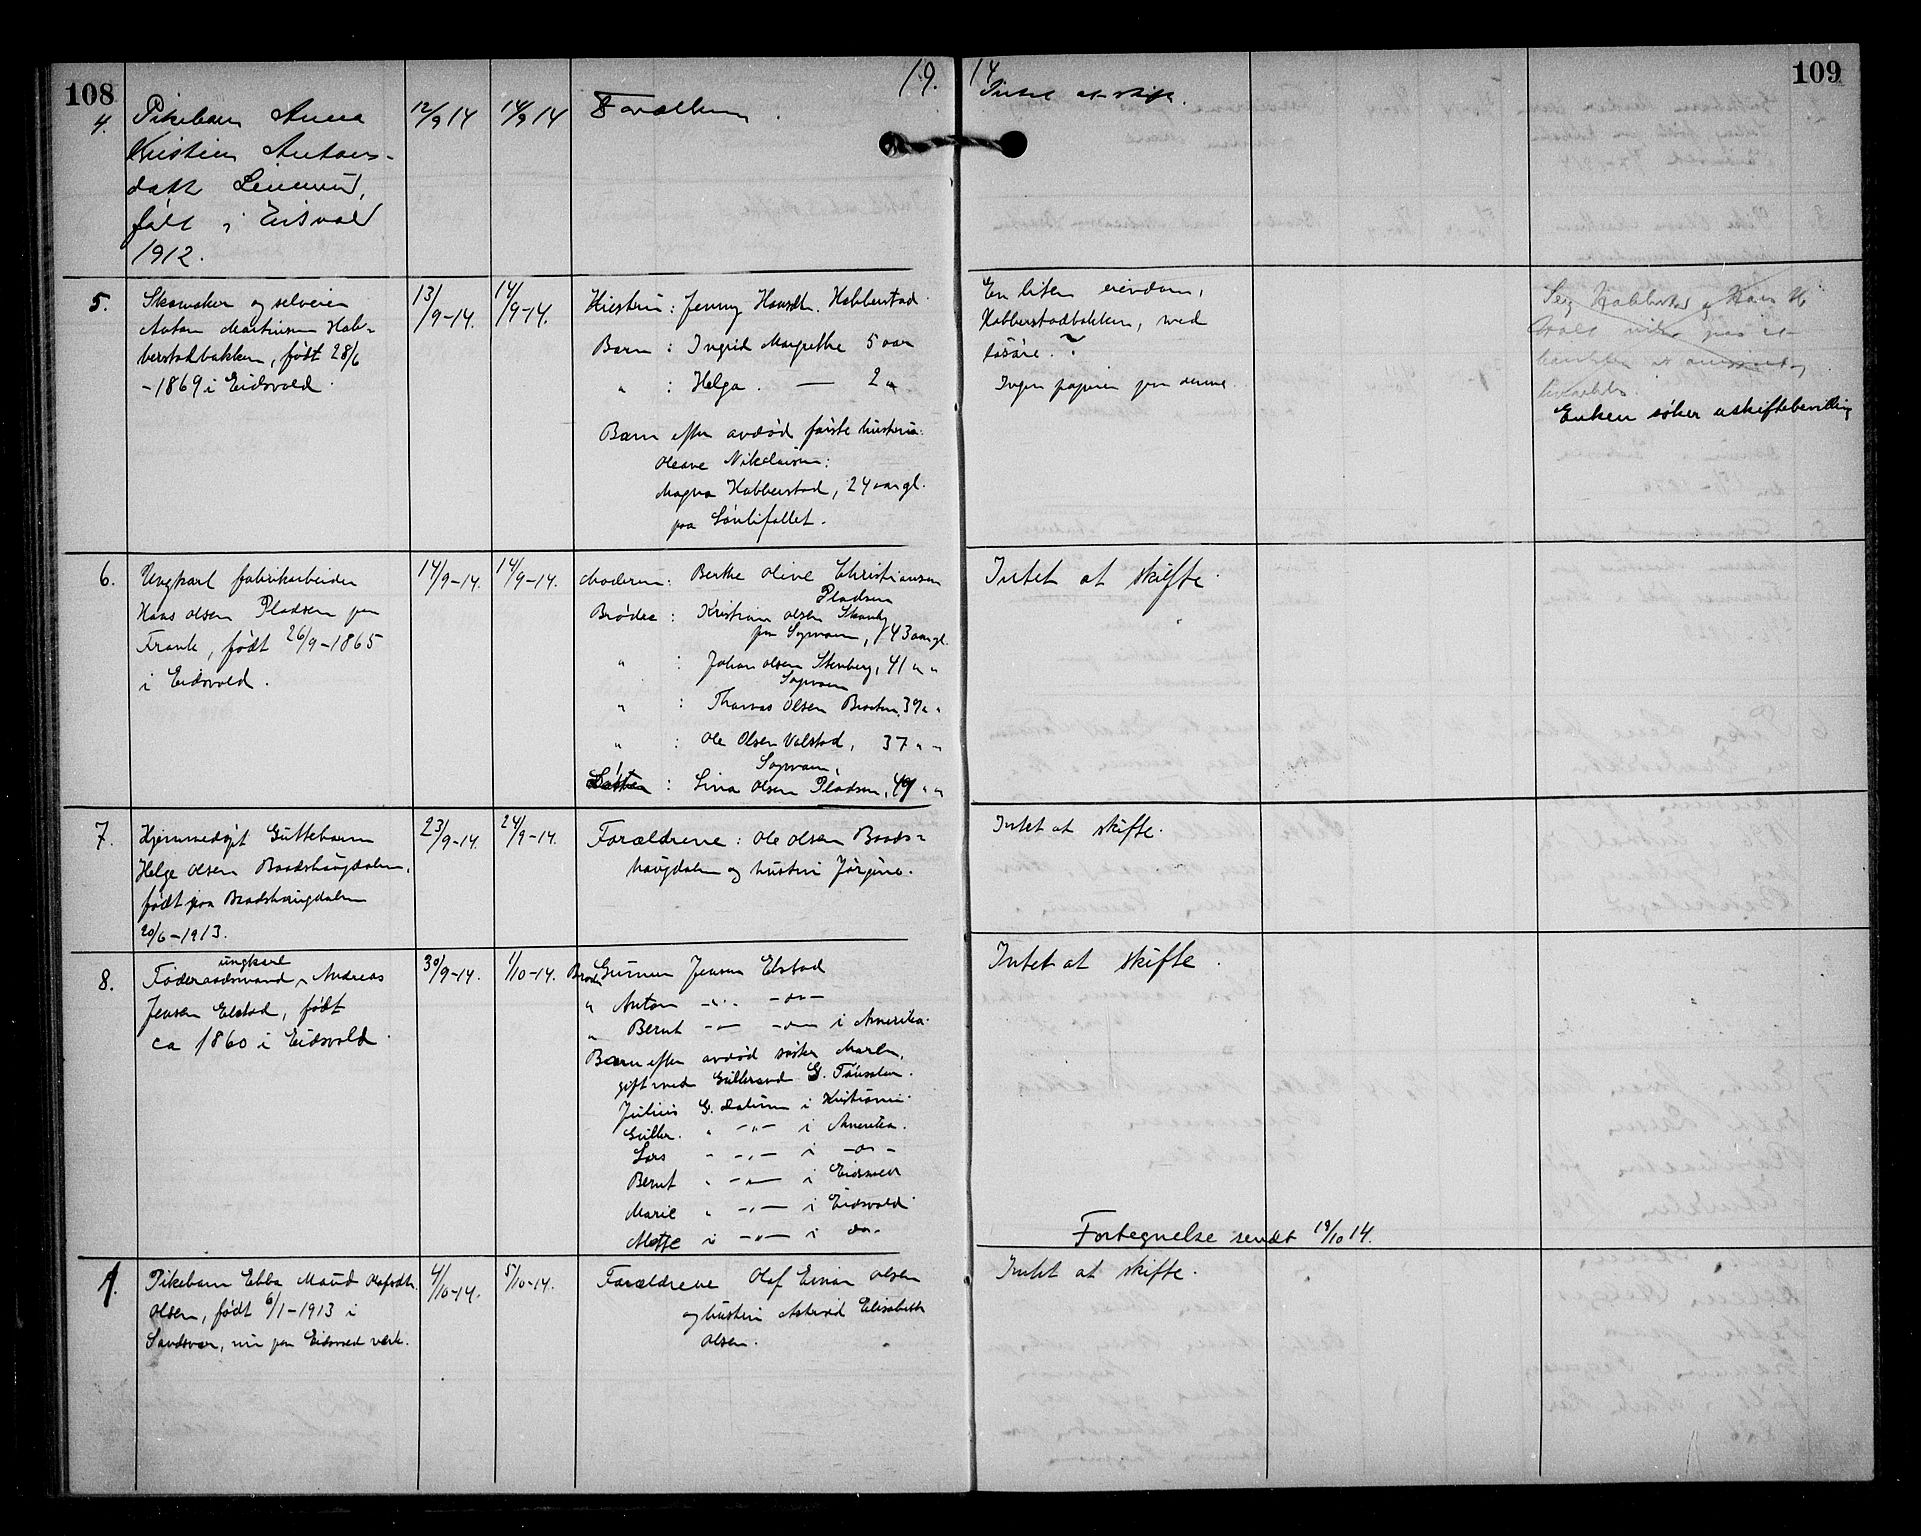 108
19.
14
109
4.
Pikebarn Anna
Kristine Antons-
datt
født i Eidsvold
1912.
12/9 14
14/9 14
Forældrene
Intet at skifte.
5.
Skomaker og selveier
Anton Martinsen Hab-
berstadbakken, født 28/6
-1869 i Eidsvold.
13/9-14.
14/9-14.
Hustru: Jenny Hansdt. Habberstad.
Barn : Ingrid Margrethe 5 aar
" : Helga. — 2 "
Barn efter avdød første hustru
Oleave Nikolaisen:
Magna Habberstad, 24 aar gl.
paa
En liten eiendom,
Habberstadbakken, med
løsøre. ?
Ingen papirer paa denne.
Habberstad
Enken søker uskiftebevilling
6.
Ungkarl fabrikarbeider
Hans Olsen Pladsen paa
født 26/9-1865
i Eidsvold.
14/9-14.
14/9-14.
Moderen: Berthe Olive Christiansen
Pladsen
Brødre : Kristian Olsen
43 aar gl.
" : Johan Olsen Stenberg, 41 " "
" : Thomas Olsen Braaten, 39 " "
" : Ole Olsen Valstad, 37 " "
Søster : Lina Olsen Pladsen, 49 " "
Intet at skifte.
7.
Hjemmedøpt Guttebarn
Helge Olsen Baadshaugdalen,
født paa Baadshaugdalen
20/6-1913.
23/9-14.
24/9-14.
Forældrene : Ole Olsen Baads-
haugdalen og hustru Jørgine.
Intet at skifte.
8.
ungkarl
Føderaadsmand, Andreas
Jensen Elstad, født
ca 1860 i Eidsvold.
30/9-14.
1/10-14.
Broder Gunner Jensen Elstad
" Anton -"- -"-
" Bernt -"- -"- i Amerika.
Barn efter avdød søster Maren,
gift med Gulbrand G.
Julius G. i Kristiania.
Gulbr. " -"- i Amerika.
Lars " -"- i -"-
Bernt " -"- i Eidsvold
Marie " -"- i Eidsvold
Mette " -"- i do.
Intet at skifte.
Fortegnelse sendt 19/10 14.
1.
Pikebarn Ebba Maud Olafsdtr.
Olsen, født 6/1-1913 i
Sandsvær, nu paa Eidsvold værk.
4/10-14.
5/10-14.
Forældrene Olaf Einar Olsen
og hustru Astrid Elisabeth
Olsen.
Intet at skifte.